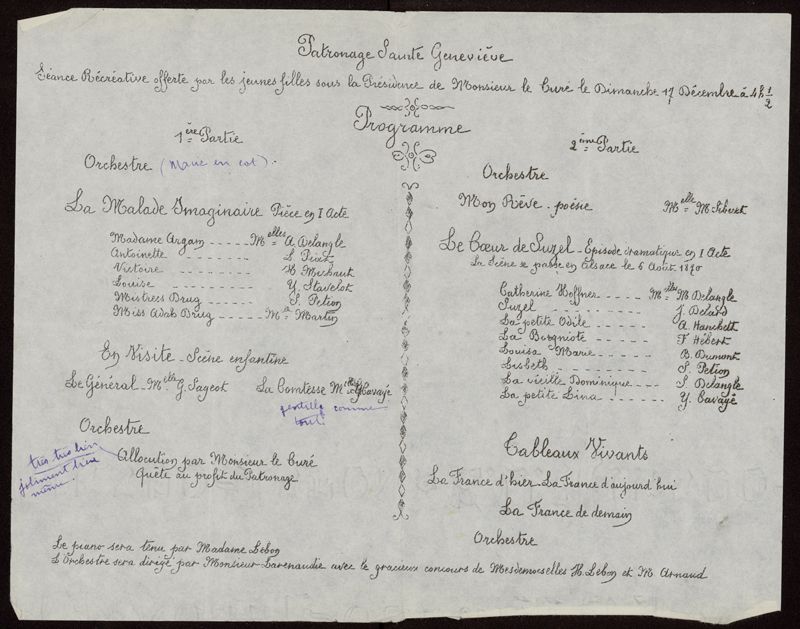 Patronage Sainte Geneviève
Séance Récréative offerte par les jeunes filles sous la Présidence de Monsieur le Curé le Dimanche 17 Décembre à 4h 1/2
Programme
1ère Partie
Orchestre (Marie en est).
La Malade Imaginaire Pièce en 1 Acte
Madame Argam ----- Melles A. Delangle
Antoinette ------ L. Pivet
Victoire ------ H. Michaut
Louise ------ Y. Stavelot
Mistress Drug ------ S. Petion
Miss Adab Drug ------ Ma Martin
En Visite - Scène enfantine
Le Général - Melle G. Sageot La Comtesse Melle G. Cavayé
gentille comme
tout!
Orchestre
très très bien
joliment bien
même.
Allocution par Monsieur le Curé
Quête au profit du Patronage
2ème Partie
Orchestre
Mon Rêve - poésie Melle M. Sibivet
Le Cœur de Suzel - Episode dramatique en 1 Acte
La Scène se passe en Alsace le 6 Août 1870
Catherine Hoffner ---- Melles M. Delangle
Suzel ------ J. Delard
La petite Odile ---- A. Hanckett
La Borgnote ---- F. Hébert
Louisa Marie ---- B. Dumont
Lisbeth ------ S. Petion
La vieille Dominique ---- S. Delangle
La petite Lina ---- Y. Cavayé
Tableaux Vivants
La France d'hier - La France d'aujourd'hui
La France de demain
Orchestre
Le piano sera tenu par Madame Lebon
L'Orchestre sera dirigé par Monsieur Larenaudie avec le gracieux concours de Mesdemoiselles H. Lebon et M. Arnaud